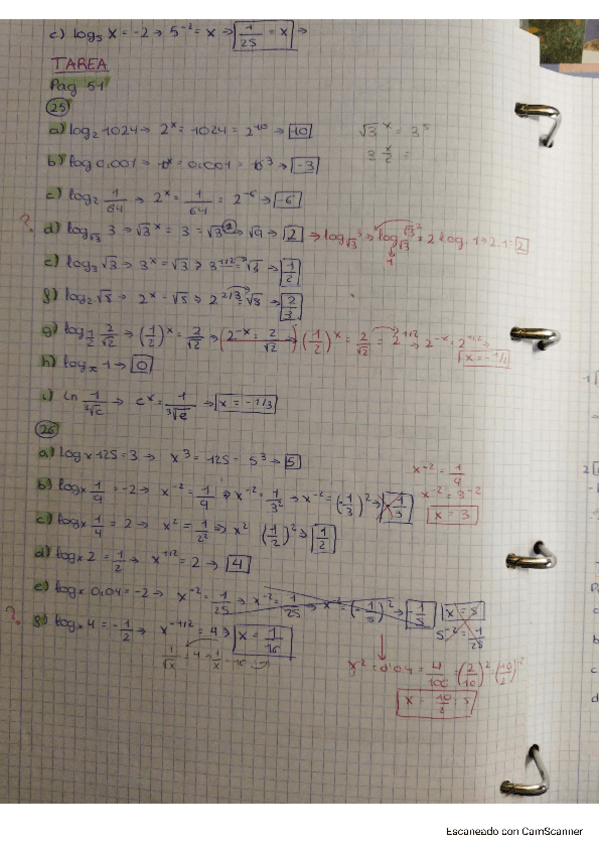 c) log₅ x = -2 → 5⁻² = x → 1/25 = x →
TAREA
Pag 51
25
a) log₂ 1024 → 2ˣ = 1024 = 2¹⁰ → 10
√3ˣ = 3⁵
3 x/2 =
b) log 0.001 → = 0.001 = → -3
c) log₂ 1/64 → 2ˣ = 1/64 = 2⁻⁶ → -6
?. d) log√3 3 → √3ˣ = 3 = √3² → √9 → 2 → log√3 → log√3 √3² = 2 log · 1 → 2·1 = 2
1
e) log₃ √3 → 3ˣ = √3 → 3¹/² = √3 → 1/2
f) log₂ √8 → 2ˣ = √8 → 2²/³ = √8 → 2/3
g) log 1/2 2/√2 → (1/2)ˣ = 2/√2 → (2⁻ˣ = 2/√2) (1/2)ˣ = 2/√2 = 2¹/² → 2⁻ˣ = 2¹/² →
x = -1/2
h) logπ 1 → 0
i) Ln 1/³√e → eˣ = 1/³√e → x = -1/3
26
a) log x 125 = 3 → x³ = 125 = 5³ → 5
x⁻² = 1/9
b) log x 1/9 = -2 → x⁻² = 1/9 → x⁻² = 1/3² → x⁻² = (-1/3)² →
x⁻² = 3⁻²
x = 3
c) log x 1/4 = 2 → x² = 1/2² → x² (1/2)² → 1/2
d) log x 2 = 1/2 → x¹/² = 2 → 4
e) log x 0,04 = -2 → x⁻² = 1/25 → x⁻² = 1/25 → x² = (-1/5)² → -1/5 x = 5
5⁻² = 1/25
?. g) log x 4 = -1/2 → x⁻¹/² = 4 → x = 1/16
1/√x = 4 → 1/x = 16
x⁻² = 0'04 = 4/100 = (2/10)² = (10/2)⁻²
x = 10/2 = 5
Escaneado con CamScanner